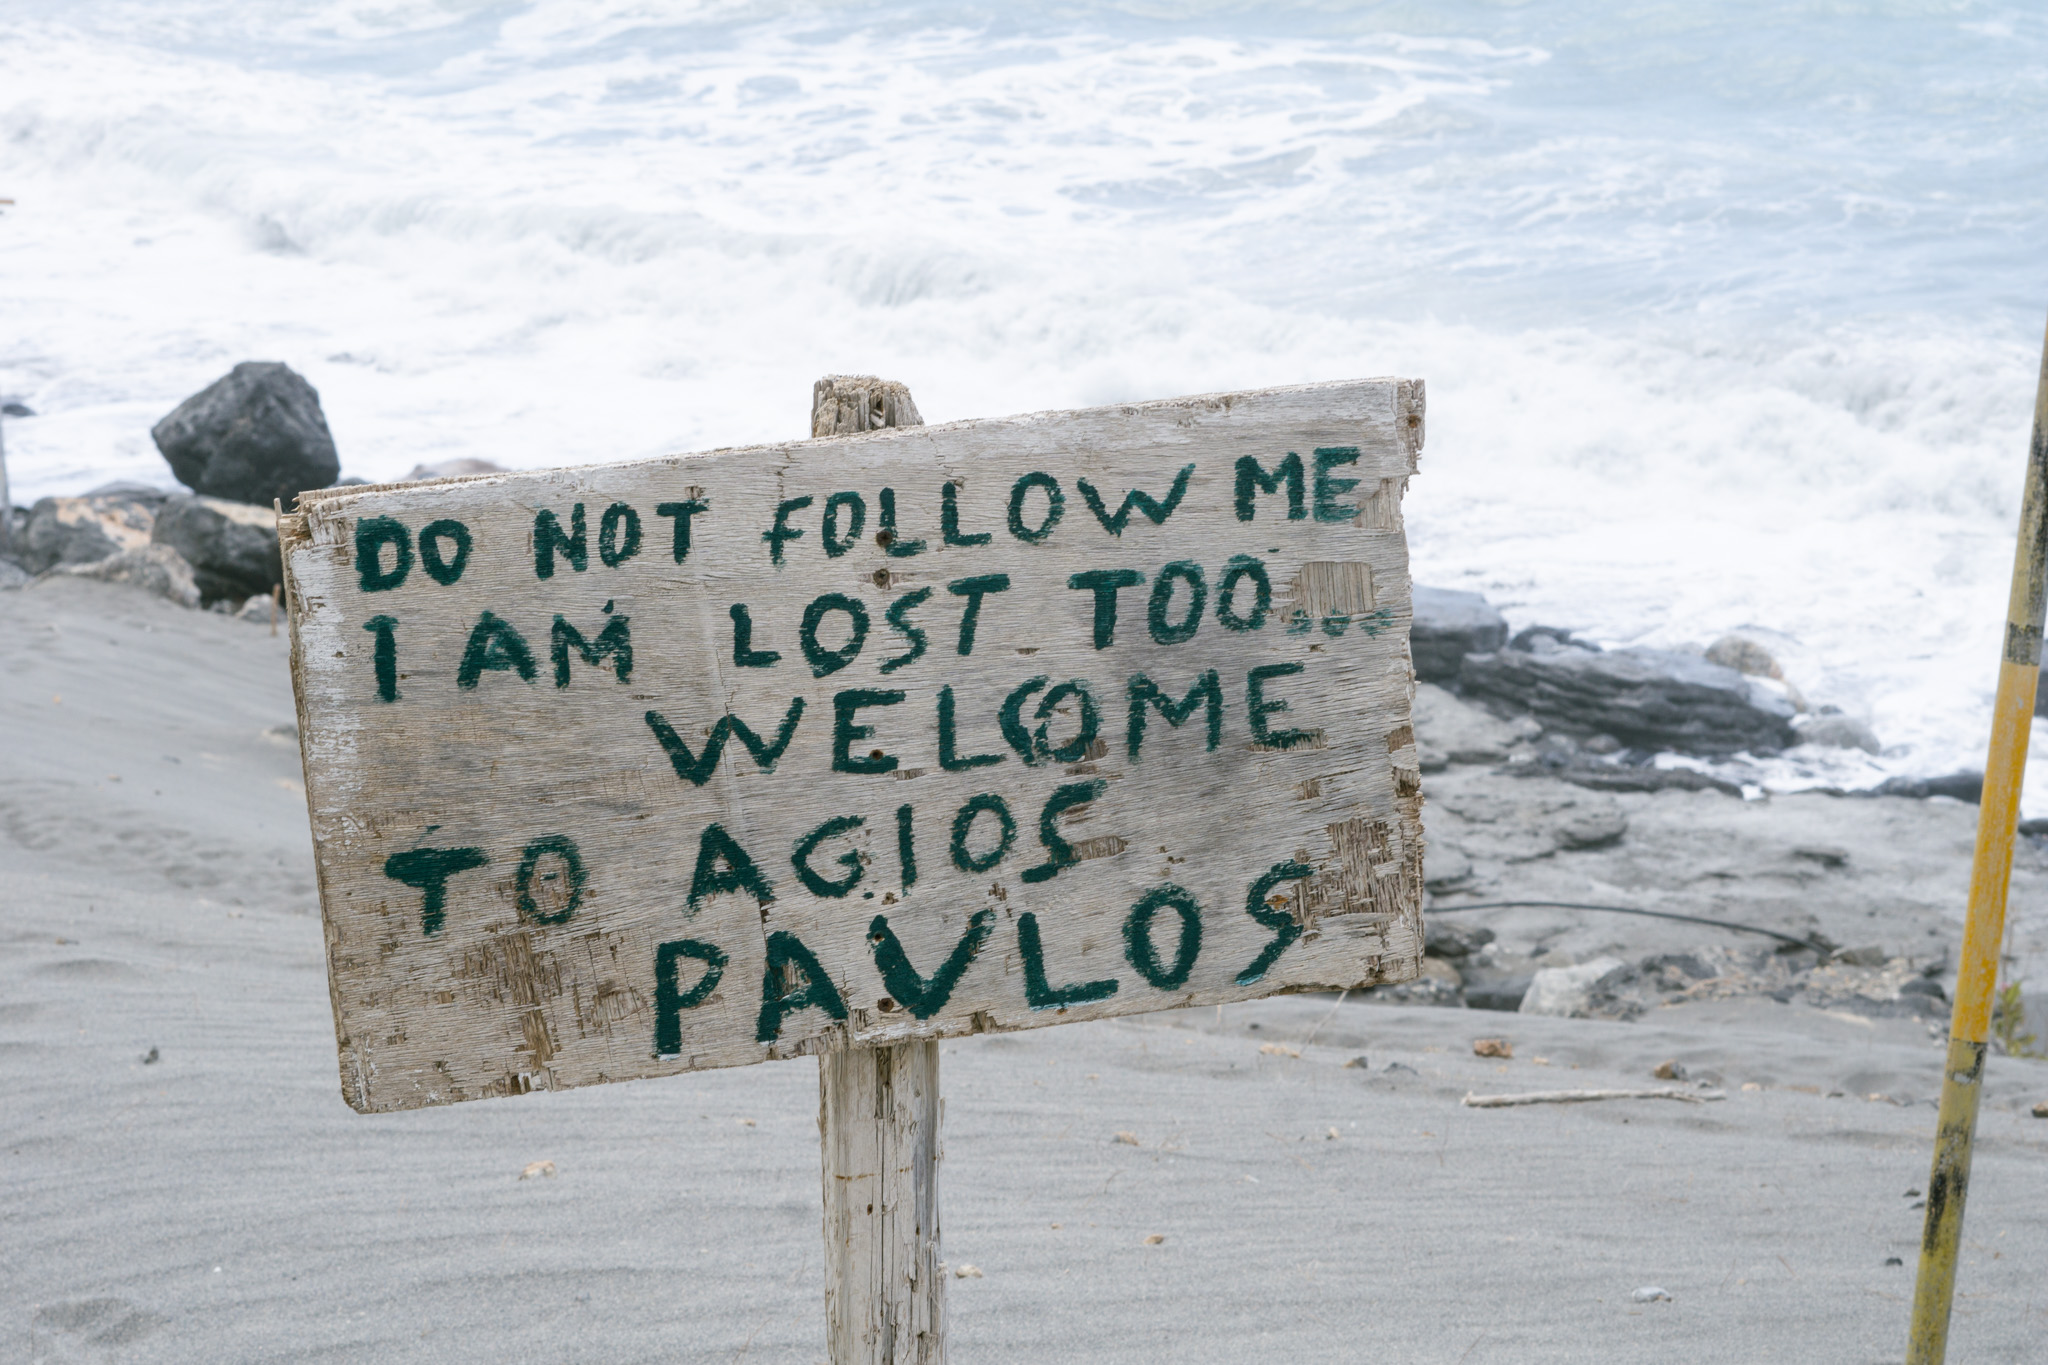 DO NOT FOLLOW ME
I AM LOST TOO...
WELCOME
TO AGIOS
PAVLOS